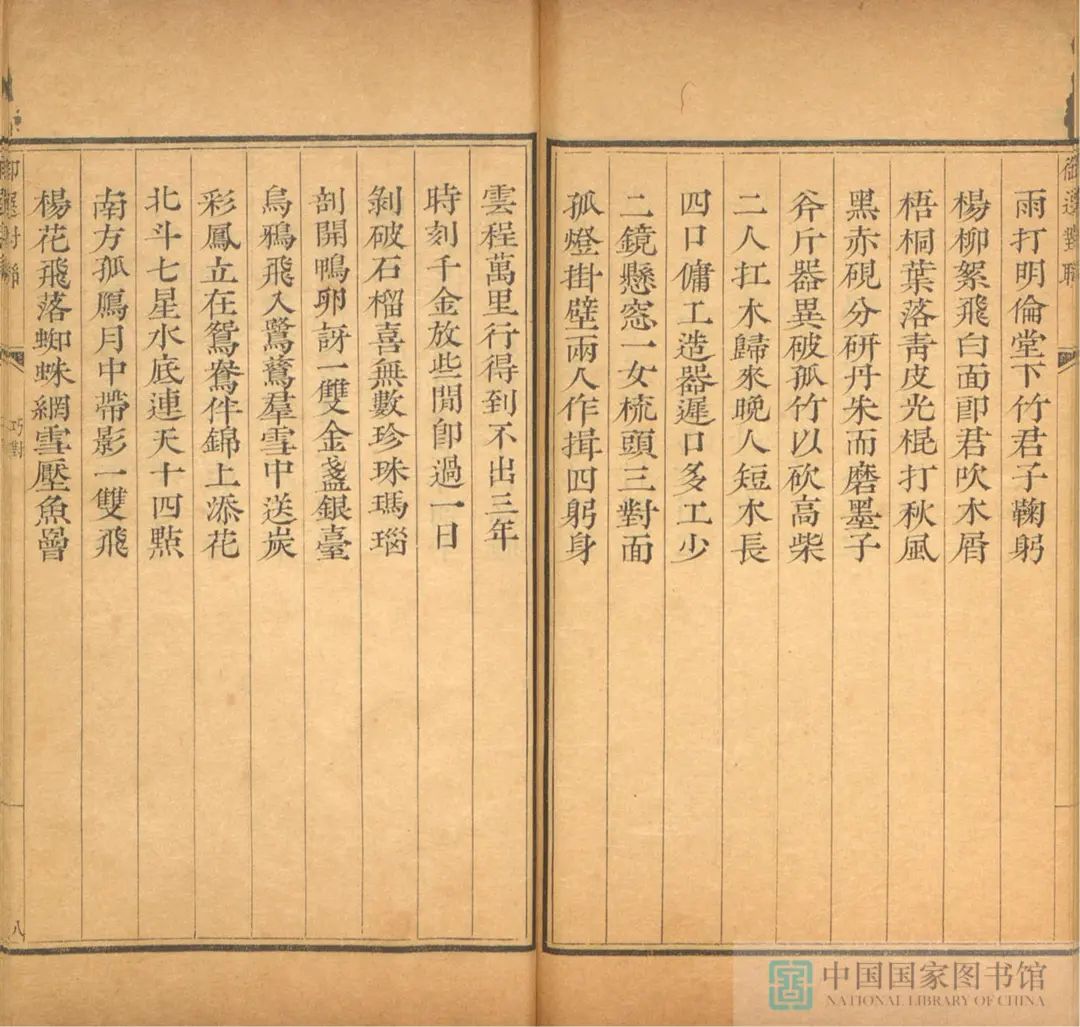 御選對聯
雨打明倫堂下竹君子鞠躬
楊柳絮飛白面郎君吹木屑
梧桐葉落青皮光棍打秋風
黑赤硯分研丹朱而磨墨子
斧斤器異破孤竹以砍高柴
二人扛木歸來晚人短木長
四口傭工造器遲口多工少
二鏡懸窓一女梳頭三對面
孤燈掛壁兩人作揖四躬身
雲程萬里行得到不出三年
時刻千金放些閒卽過一日
剝破石榴喜無數珍珠瑪瑙
剖開鴨卵訝一雙金盞銀臺
烏鴉飛入鷺鷥羣雪中送炭
彩鳳立在鴛鴦伴錦上添花
北斗七星水底連天十四點
南方孤鴈月中帶影一雙飛
楊花飛落蜘蛛網雪壓魚罾
巧對
八
中国国家图书馆
NATIONAL LIBRARY OF CHINA